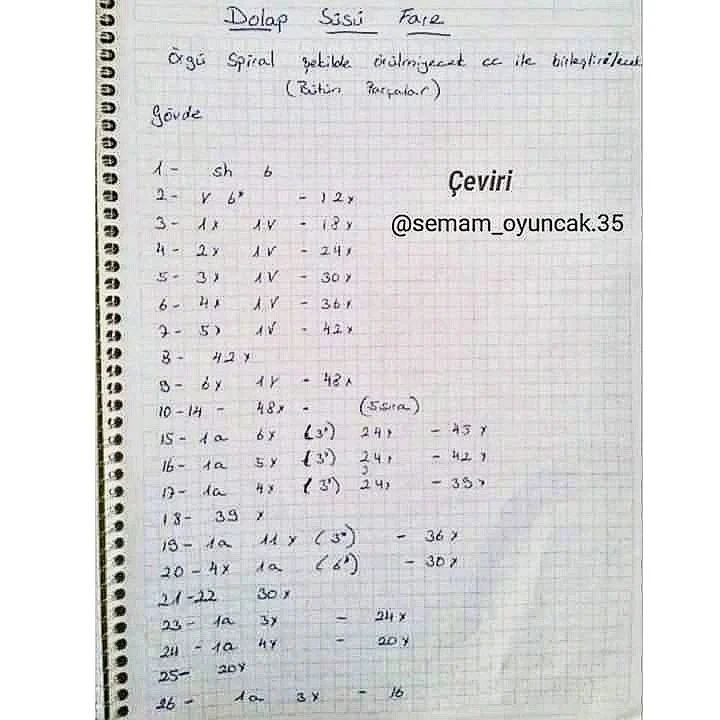 Dolap Süsü Fare
Örgü Spiral şekilde örülmiyecek cc ile birleştirilecek
(Bütün Parçalar)
Gövde
1 - sh 6
Çeviri
2 - V 6* - 12x
@semam_oyuncak.35
3 - 1x 1V - 18x
4 - 2x 1V - 24x
5 - 3x 1V - 30x
6 - 4x 1V - 36x
7 - 5x 1V - 42x
8 - 42x
9 - 6x 1V - 48x
10-14 - 48x - (5 sıra)
15 - 1a 6x (3*) 24x - 45x
16 - 1a 5x (3*) 24x - 42x
17 - 1a 4x (3*) 24x - 39x
18 - 39 x
19 - 1a 11x (3*) - 36x
20 - 4x 1a (6*) - 30x
21-22 30x
23 - 1a 3x - 24x
24 - 1a 4x - 20x
25 - 20x
26 - 1a 3x - 16